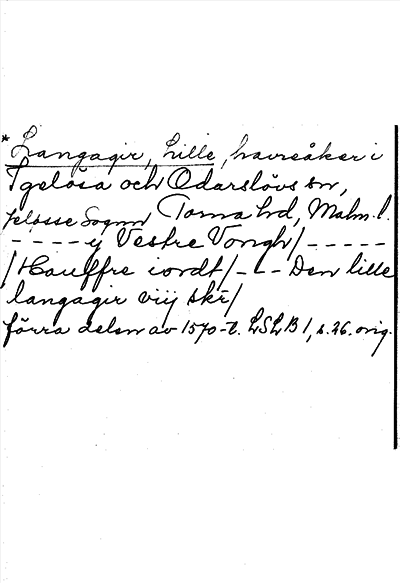 * Langagir, Lille, havreåker i
Igelösa och Odarslövs sn,
Torna hd, Malm. l.
- - - - - y Vestre Vongh/ - - - - -
/Hauffre iordt/ - - - Den lille
langagir viij skr/
förra delen av 1570-t. LSLB 1, s. 26. orig.